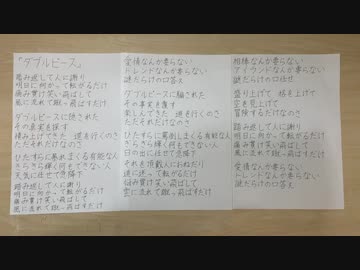 「ダブルピース」
踏み返して人に謝り
明日に向かって転がるだけ
痛み買け笑い飛ばして
風に流れて蹴っ飛ばすだけ
ダブルピースに隠された
その真実を探す
積み上げてきた 道を行くのさ
ただそれだけなのさ
ひたすらに暴れまくる有能な人
きらきら輝く何もできない人
天気に任せて急降下
踏み返して人に謝り
明日に向かって転がるだけ
痛み買け笑い飛ばして
風に流れて蹴っ飛ばすだけ
愛情なんか要らない
トレンドなんか要らない
謎だらけの口答え
ダブルピースに騙された
その事実を探す
楽しんできた 道を行くのさ
ただそれだけなのさ
ひたすらに罵倒しまくる有能な人
きらきら輝く何もできない人
日の出に任せて急降下
それを頂戴人におねだり
逆に迷って転がるだけ
悩み買け笑い飛ばして
空に流れて蹴っ飛ばすだけ
相棒なんか要らない
アイランドなんか要らない
謎だらけの口任せ
盛り上げて 格を上げて
空を見上げて
冒険するだけなのさ
踏み返して人に謝り
明日に向かって転がるだけ
痛み買け笑い飛ばして
風に流れて蹴っ飛ばすだけ
愛情なんか要らない
トレンドなんか要らない
謎だらけの口答え